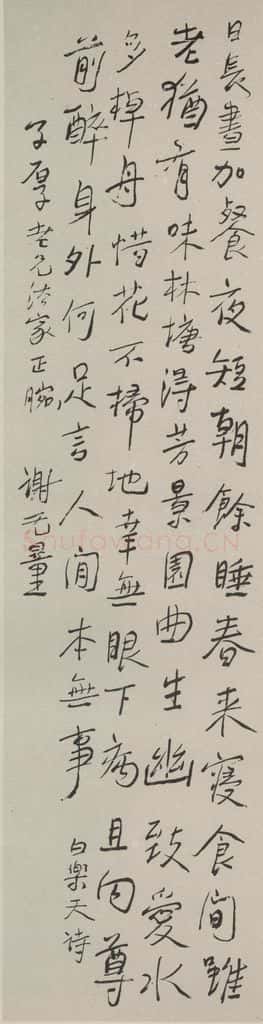 日長晝加餐夜短朝餘睡春来寝食間雖
老猶有味林塘得芳景園曲生幽致愛水
多棹舟惜花不掃地幸無眼下病且向尊
前醉身外何足言人间本無事 白樂天詩
子厚老兄法家正腕 謝无量
Shufawang.CN